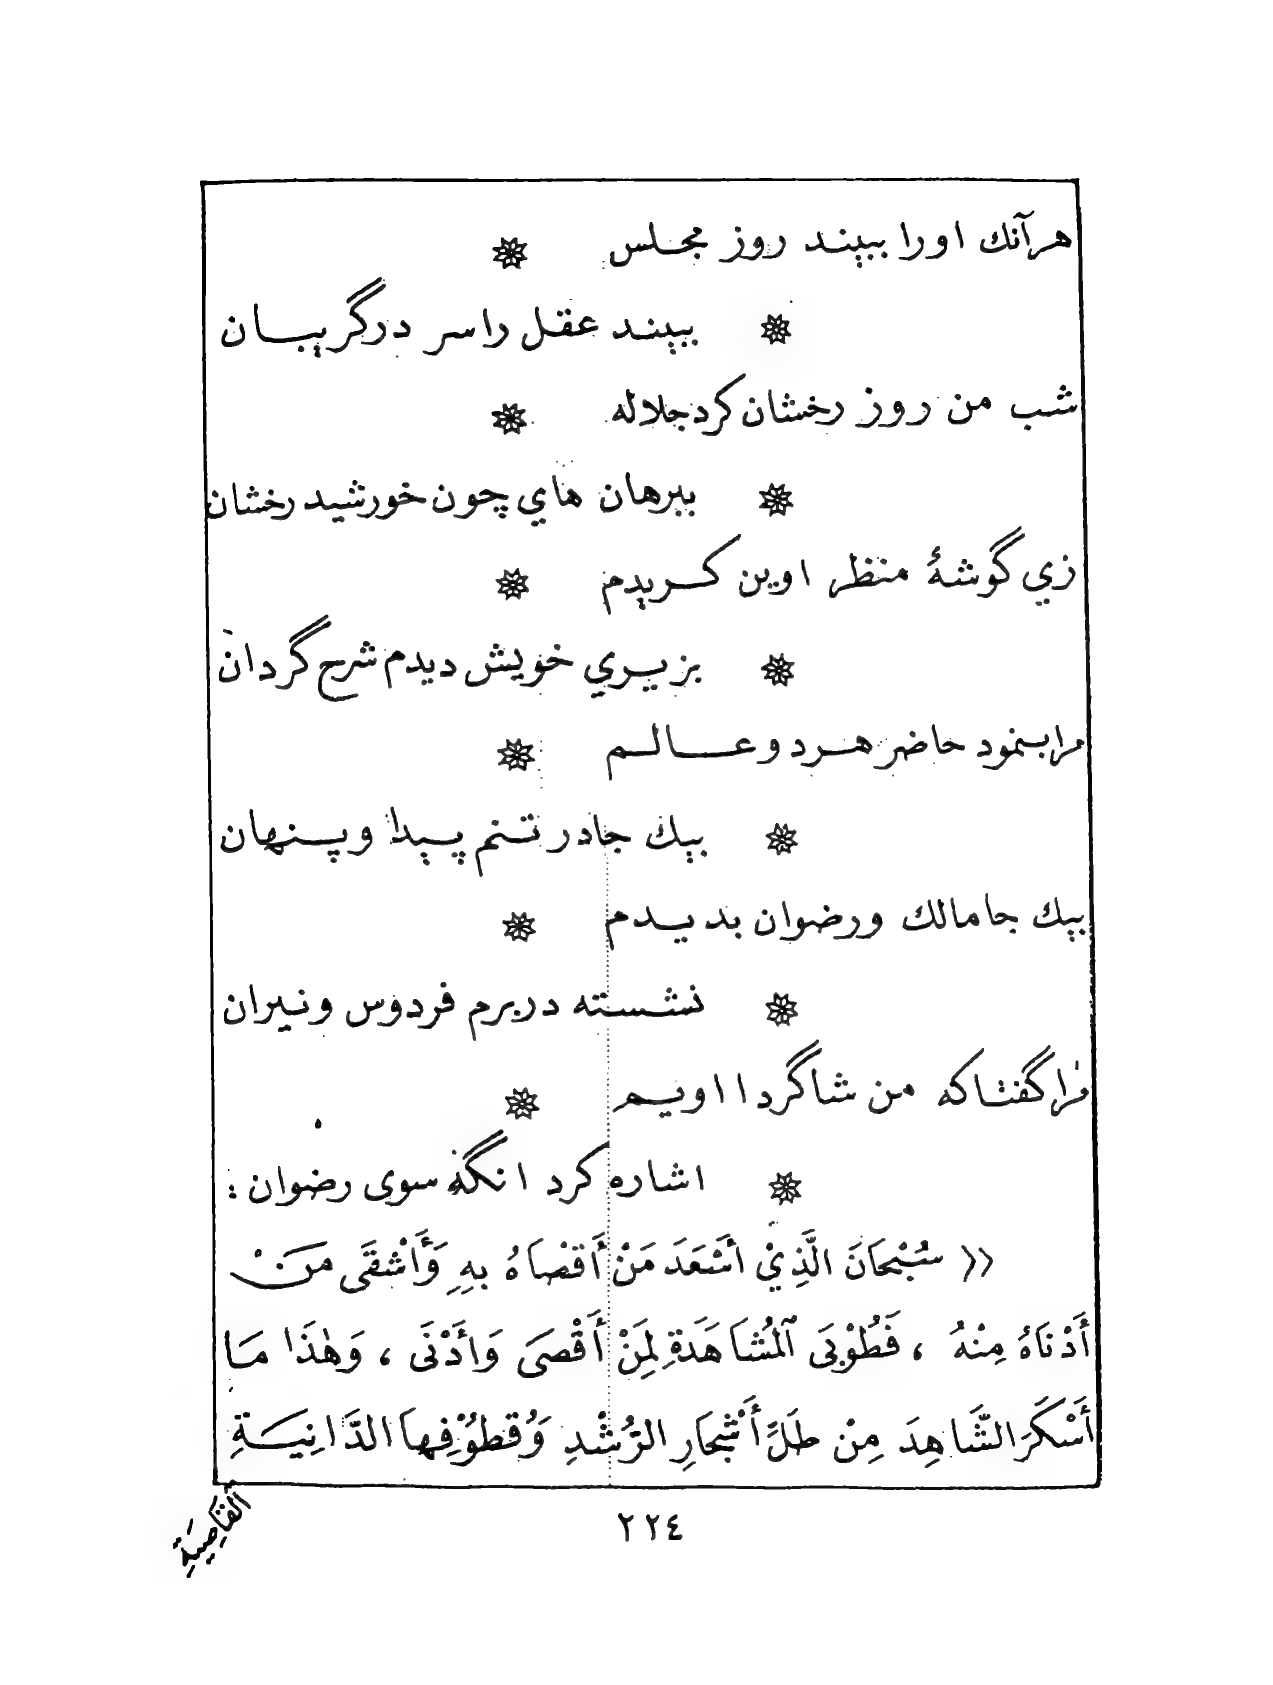 هرآنك اورا ببيند روز مجلس
ببيند عقل راسر درگريبان
شب من روز رخشان كردجلاله
ببرهان هاي چون خورشيد رخشان
زي گوشۀ منظر اوين كريدم
بزيري خويش ديدم شرح گردان
مرابنمود حاضر هرد وعالم
بيك جادر تنم پيدا وپنهان
بيك جامالك ورضوان بديدم
نشسته دربرم فردوس ونيران
مراگفتاكه من شاگرد ا اويم
اشاره كرد انگه سوى رضوان :
(( سُبْحَانَ الَّذِيْ أَسْعَدَ مَنْ أَقْصَاهُ بِهِ وَأَشْقَى مَنْ
أَدْنَاهُ مِنْهُ ، فَطُوْبَى ٱلمُشَاهَدَةِ لِمَنْ أَقْصَى وَأَدْنَى ، وَهٰذَا مَا
أَسْكَرَ الشَّاهِدَ مِنْ ظِلِّ أَشْجَارِ الرُّشْدِ وَقُطُوْفِهَا الدَّانِيَةِ
٢٢٤
القَاصِيَةِ